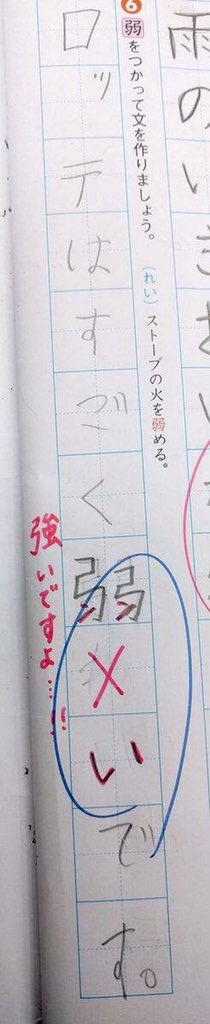 雨のいき
6 弱をつかって文を作りましょう。
(れい) ストーブの火を弱める。
ロッテはすごく弱いです。
強いですよ…!!